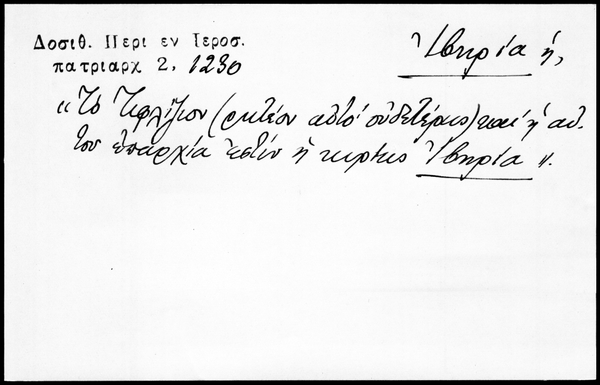 Δοσιθ. Περι εν Ιεροσ.
πατριαρχ 2, 1230
Ἰβηρία ἡ,
"Τὸ Τιφλήζιον (ῥητέον αὐτὸ οὐδετέρως) καὶ ἡ αὐ-
τοῦ ἐπαρχία ἐστὶν ἡ κυρίως Ἰβηρία".